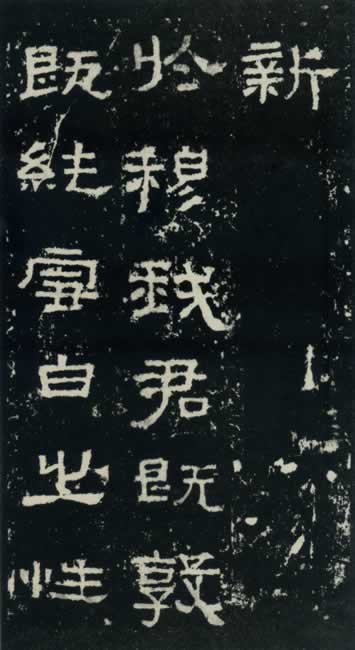 新
於穆我君既敦
既純雪白之性